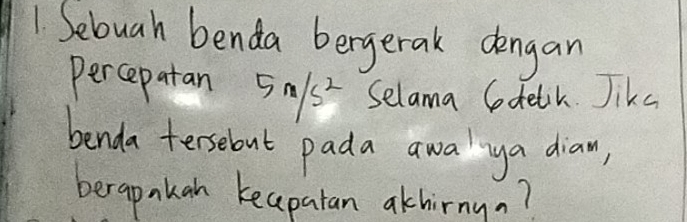 1. Sebuah benda bergerak dengan
Percepatan 5 m/s² Selama 6 detik. Jika
benda tersebut pada awalnya diam,
berapakah kecepatan akhirnya?